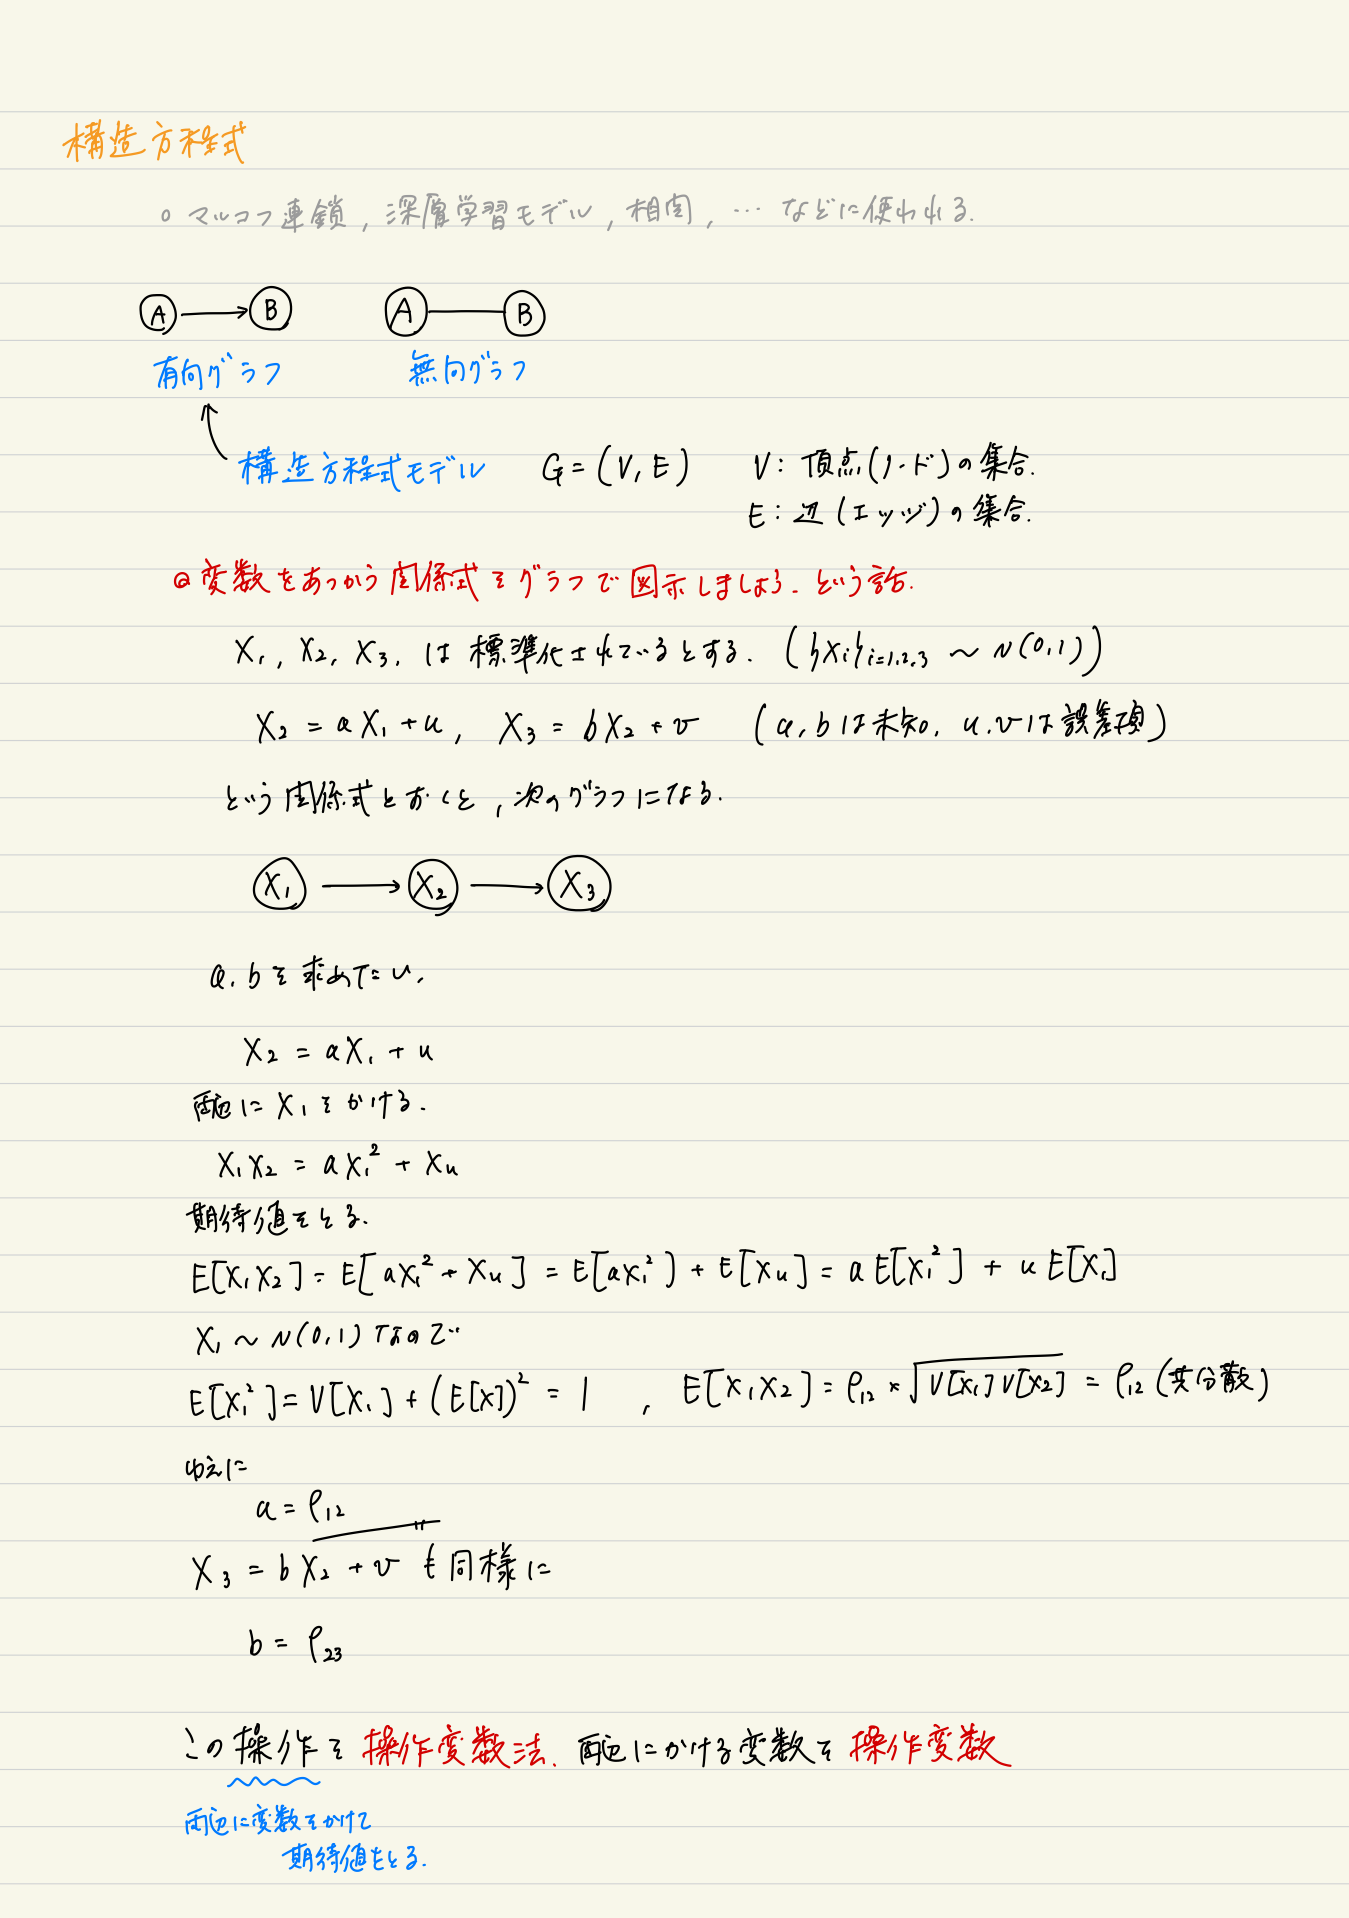 構造方程式
○ マルコフ連鎖, 深層学習モデル, 相関, … などに使われる.
A → B  A — B
有向グラフ  無向グラフ
構造方程式モデル  G = (V, E)  V : 頂点(ノード)の集合.
E : 辺(エッジ)の集合.
◎ 変数をあつかう関係式をグラフで図示しましょう. という話.
X₁, X₂, X₃, は標準化されているとする. ({Xi}i=1,2,3 ~ N(0,1))
X₂ = aX₁ + u, X₃ = bX₂ + v (a, bは未知, u, vは誤差項)
という関係式とおくと, 次のグラフになる.
X₁ → X₂ → X₃
a, bを求めたい.
X₂ = aX₁ + u
両辺にX₁をかける.
X₁X₂ = aX₁² + Xu
期待値をとる.
E[X₁X₂] = E[aX₁² + Xu] = E[aX₁²] + E[Xu] = aE[X₁²] + uE[X₁]
X₁ ~ N(0,1) なので
E[X₁²] = V[X₁] + (E[X])² = 1 , E[X₁X₂] = ρ₁₂ × √V[X₁]V[X₂] = ρ₁₂ (共分散)
ゆえに
a = ρ₁₂
X₃ = bX₂ + v も同様に
b = ρ₂₃
この操作を操作変数法. 両辺にかける変数を操作変数
両辺に変数をかけて
期待値をとる.